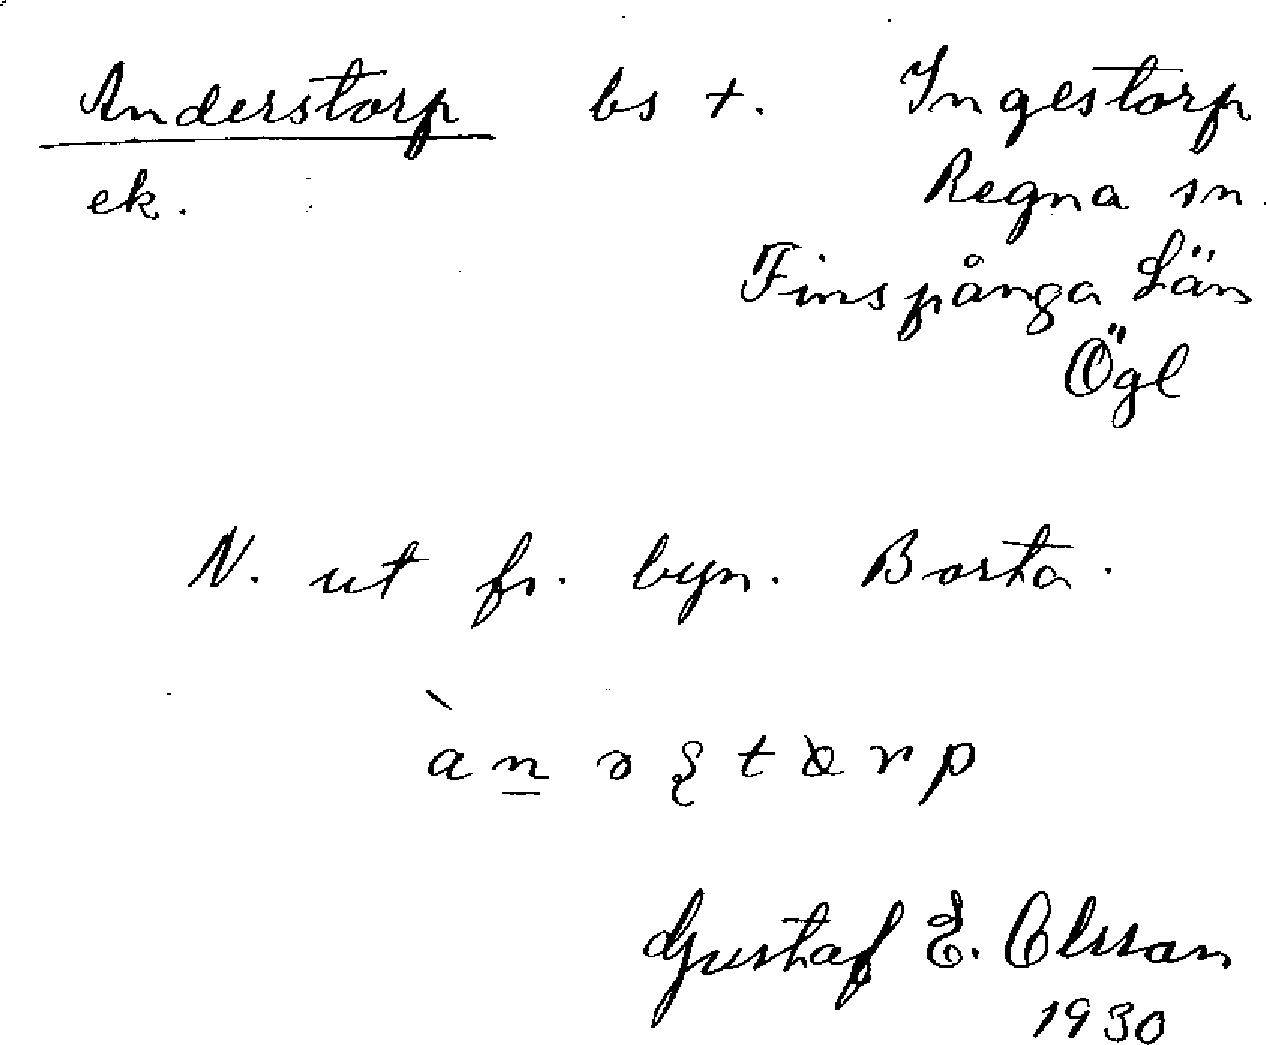 Anderstorp bs +. Ingestorp
ek. Regna sn.
Finspånga Län
Ögl
N. ut fr. byn. Borta.
Gustaf E. Olsson
1930